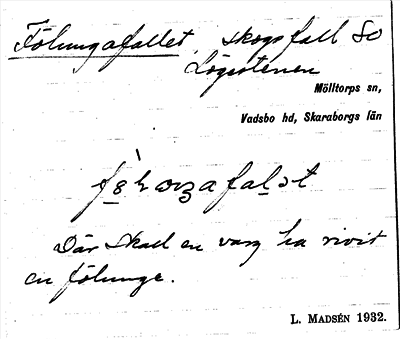 Fölungafallet, skogsfall SO
Lögstenen
Mölltorps sn,
Vadsbo hd, Skaraborgs län
Där skall en varg ha rivit
en fölunge.
L. MADSÉN 1932.